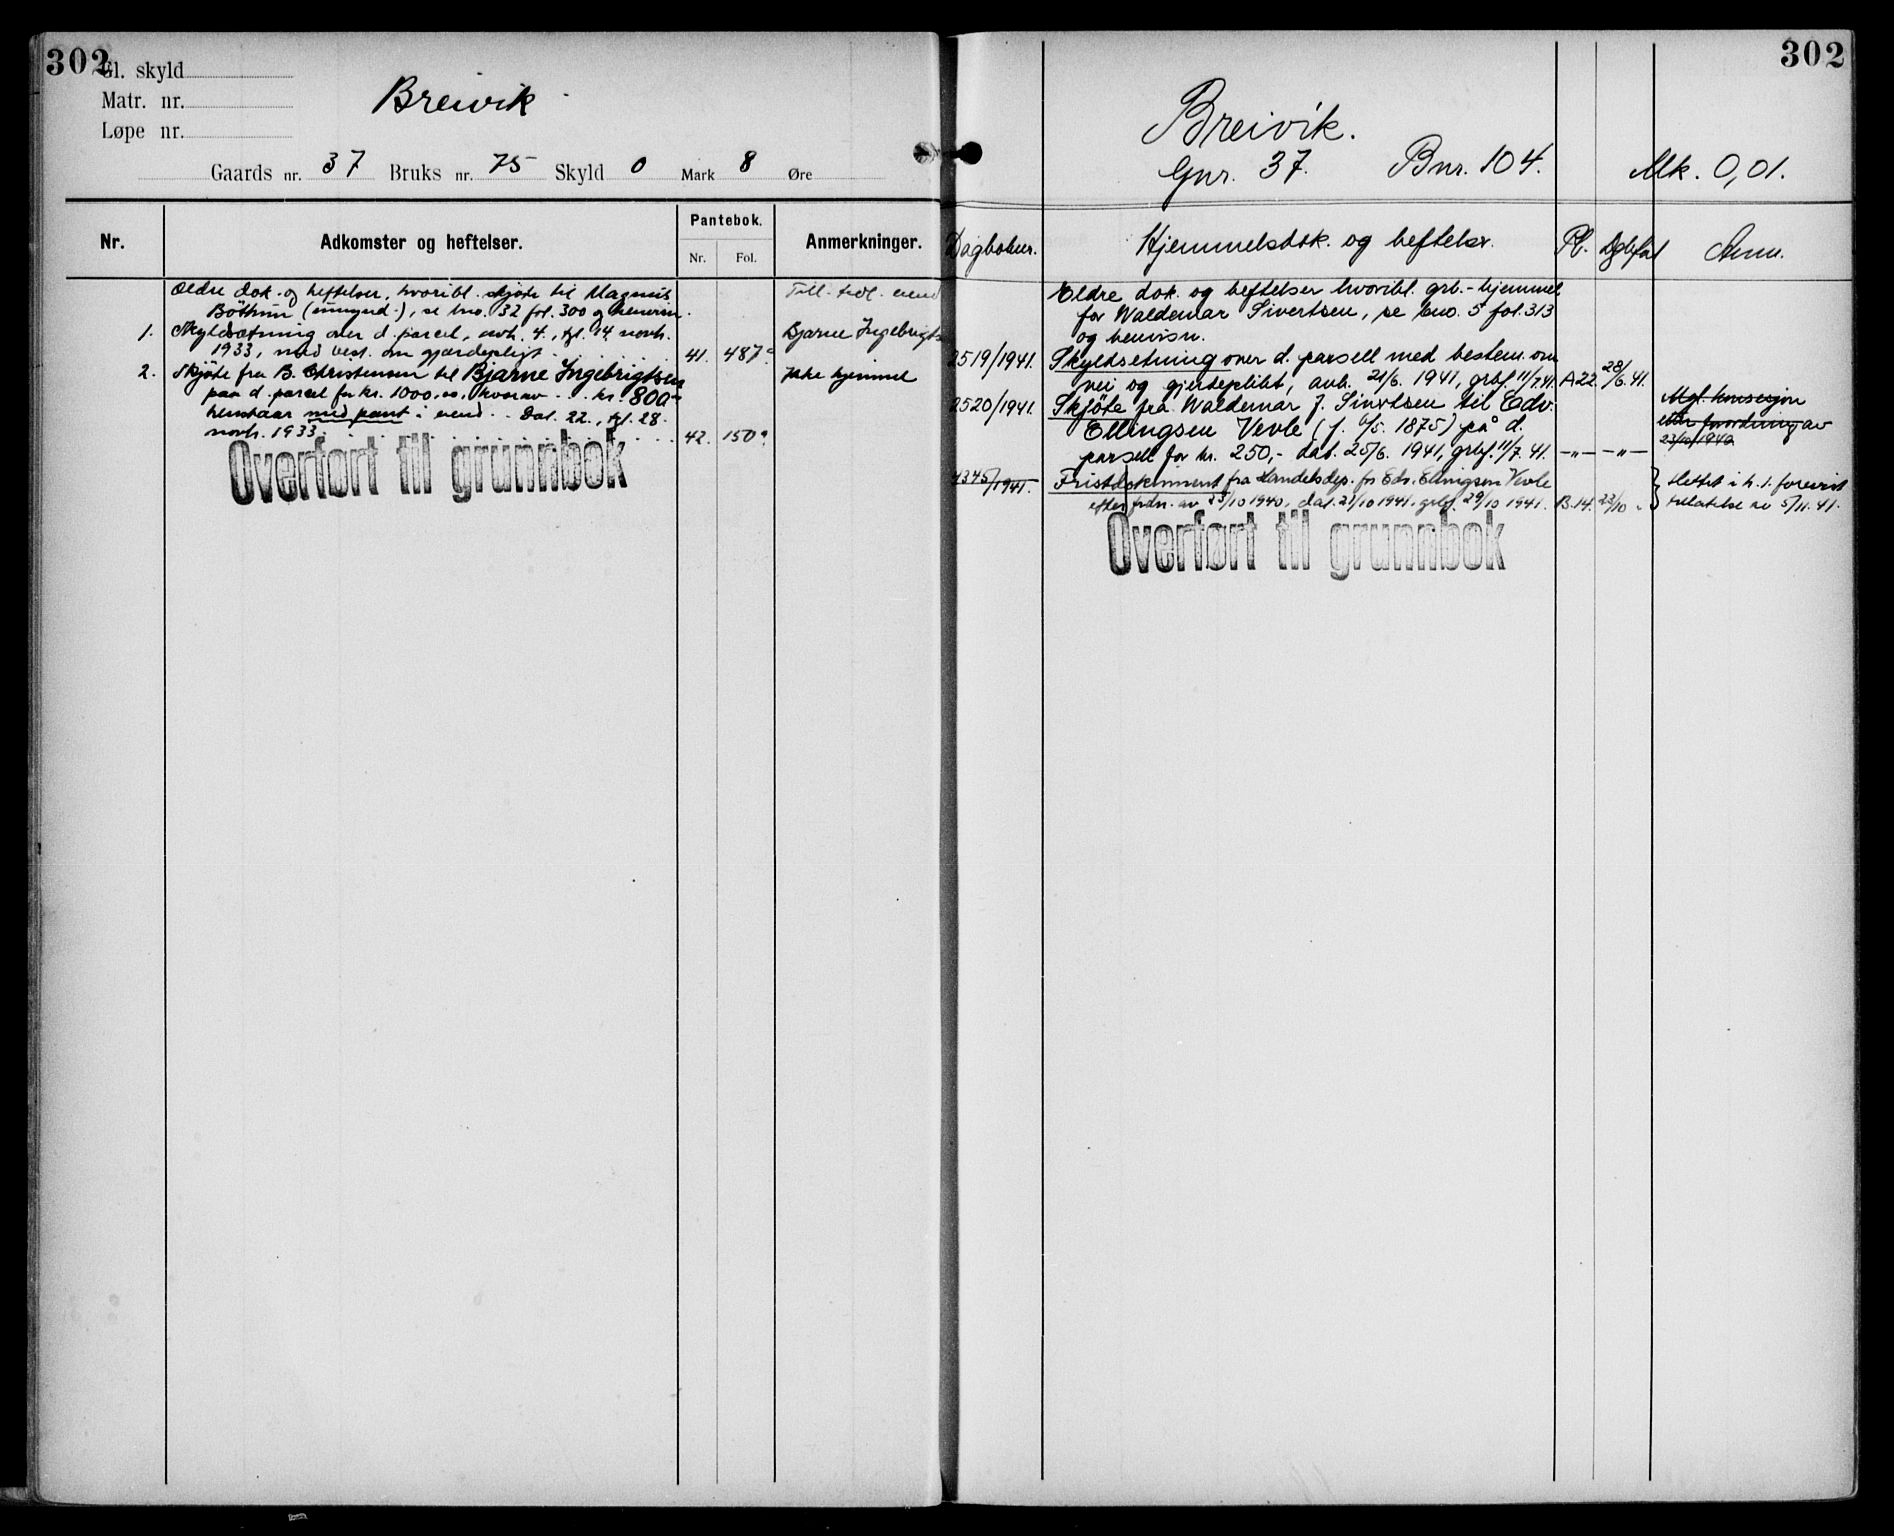 302
Gl. skyld
Matr. nr.
Løpe nr.
Breivik
Gaards nr. 37 Bruks nr. 75 Skyld 0 Mark 8 Øre
Nr.
Adkomster og heftelser.
Pantebok.
Nr. Fol.
Anmerkninger.
Ældre dok. og heftelser, hvoribl. skjøte til Magnus
Böthun (umynd.), se bno. 32 fol. 300 og henvisn.
Till. tidl. eiend
1. Skyldsætning over d. parcel, avh. 4., tgl. 14 novb.
1933, med best. om gjærdepligt. 41. 487
Bjarne Ingebrigts
2. Skjøte fra B. Christensen til Bjarne Ingebrigtsen
Ikke hjemmel
paa d. parcel for kr. 1000,00, hvorav . . kr. 800
henstaar med pant i eiend. . Dat. 22., tgl. 28.
novb. 1933. 42. 150
Overført til grunnbok
302
Breivik.
Gnr. 37. Bnr. 104. Mk. 0,01.
Dagboknr. Hjemmelsdok. og heftelser. Pb. Dgbf. Anm.
Eldre dok. og heftelser hvoribl. grb.-hjemmel
for Waldemar Sivertsen, se bno. 5 fol. 313
og henvisn.
2519/1941. Skyldsetning over d. parsell med bestem. om
vei og gjerdeplikt, avh. 21/6. 1941, grbf. 11/7.41. A22. 28/6.41.
2520/1941. Skjöte fra Waldemar J. Sivertsen til Edv.
Ellingsen Vevle (f. 6/5. 1875) på d.
parsell for kr. 250,- dat. 25/6. 1941, grbf. 11/7. 41. —„— —„—
Mgl. konsesjon
etter forordning av
23/10 1940
4345/1941. Fristdokument fra Handelsdep. for Edv. Ellingsen Vevle
efter frdn. av 23/10 1940, dat. 21/10 1941. grbf. 29/10 1941. B.14. 23/10 „
slettet i h. t. forevist
tillatelse av 5/11. 41.
Overført til grunnbok